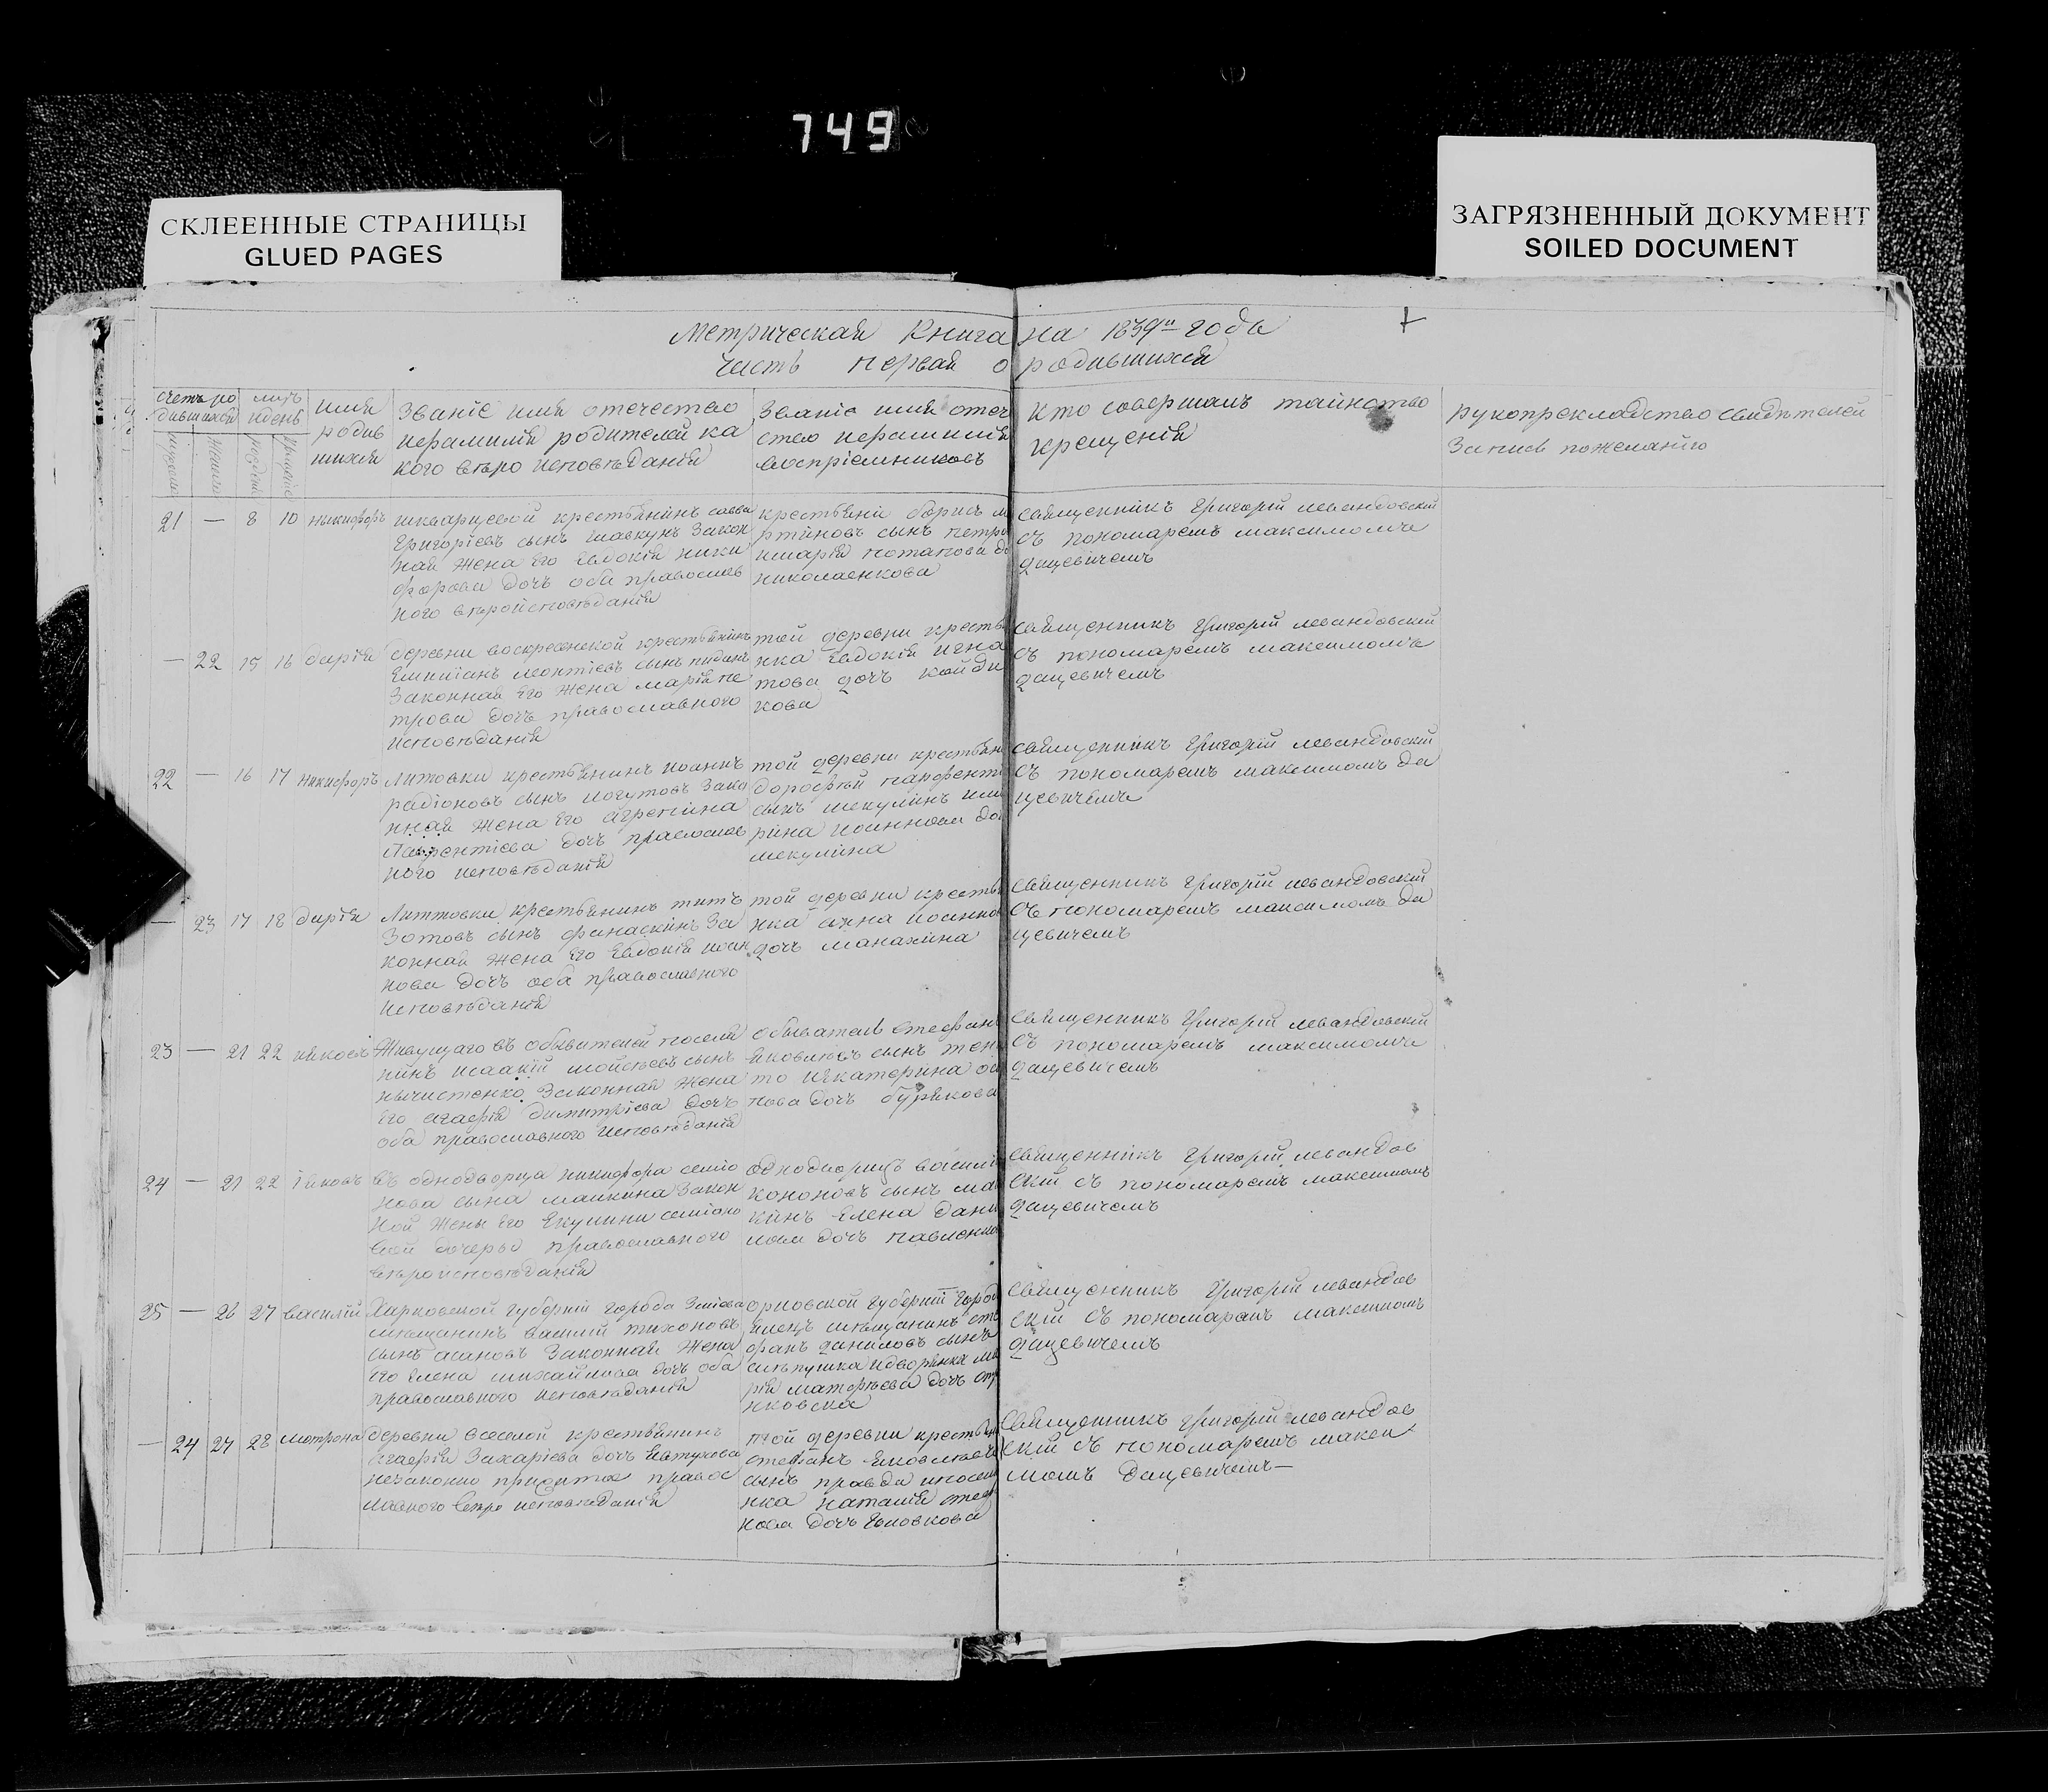 749
СКЛЕЕННЫЕ СТРАНИЦЫ
GLUED PAGES
ЗАГРЯЗНЕННЫЙ ДОКУМЕНТ
SOILED DOCUMENT
Метрическая Книга на 1839й года
Часть первая о родившихся
счетъ ро
дившихся
мць
идень
имя
родив
шихся
Званіе имя отечество
ифамилія родителей ка
кого веро исповѣданія
Званіе имя отече
ство ифамилія
воспріемниковъ
Кто совершалъ таинство
крещенія
рукоприкладство свидѣтелей
Записи пожеланію
21 — 8 10 никифоръ
крестьянинъ савва
Григоріевъ сынъ шавкунъ Закон
ная жена Его Евдокія ники
форова дочь оба православ
ного вѣроисповѣданія
крестьяне борисъ ма
ртиновъ сынъ петра
имарія потапова до
николаенкова
священникъ Григорій левандовскій
съ пономаремъ максимомъ
дацевичемъ
— 22 15 16 дарія
деревни воскресенской крестьянинъ
Емиліанъ леонтіевъ сынъ
Законная Его жена марія пе
трова дочь православного
исповѣданія
той деревни крестья
нка Евдокія игна
това дочь кайда
кова
священникъ Григорій левандовскій
съ пономаремъ максимомъ
дацевичемъ
22 — 16 17 никифоръ
Литовки крестьянинъ иоаннъ
радіоновъ сынъ Зако
нная жена Его агрепина
Лаврентіева дочь православ
ного исповѣданія
той деревни крестьян
дорофей парфенті
сынъ шекулинъ има
рина иоаннова до
шекулина
священникъ Григорій левандовскій
съ пономаремъ максимомъ да
цевичемъ
— 23 17 18 дарія
Литтовки крестьянинъ титъ
Зотовъ сынъ финаскинъ За
конная жена Его Евдокія иоан
нова дочь оба православного
исповѣданія
той деревни крестья
нка анна иоаннова
дочь манахина
священникъ Григорій левандовскій
съ пономаремъ максимомъ да
цевичемъ
23 — 21 22 иаковъ
Живущаго въ обывателей поселя
нинъ исаакій мойсѣевъ сынъ
нычистенко Законная жена
Его агафія димитріева дочь
оба православного исповѣданія
обыватель стефанъ
яковлевъ сынъ
то иекатерина
нова дочь бурякова
священникъ Григорій левандовскій
съ пономаремъ максимомъ
дацевичемъ
24 — 21 22 іаковъ
въ однодворца никифора семіо
нова сына маикина Закон
ной жены Его Екулины семіоно
вой дочерью православного
вѣроисповѣданія
однодворцъ василій
кононовъ сынъ ма
кинъ Елена дани
лова дочь павленко
священникъ Григорій левандов
скій съ пономаремъ максимомъ
дацевичемъ
25 — 26 27 василій
Харковской губерніи города Зміева
мѣщанинъ василій тихоновъ
сынъ асановъ Законная жена
Его Елена михайлова дочь оба
православного исповѣданія
орловской губерніи город
Елецъ мѣщанинъ сте
фанъ даниловъ сынъ
слѣпушка идворянка ма
рія матфѣева дочь
нковска
священникъ Григорій левандов
скій съ пономаремъ максимомъ
дацевичемъ
— 24 27 28 мотрона
деревни веселой крестьянинъ
агафія Захаріева дочь Евтухова
незаконно прижитое правос
лавного веро исповѣданія
той деревни крестьян
стефанъ яковлевъ
сынъ правда ипосел
нка наталія стеф
нова дочь
священникъ Григорій левандов
скій съ пономаремъ макси
момъ дацевичемъ—